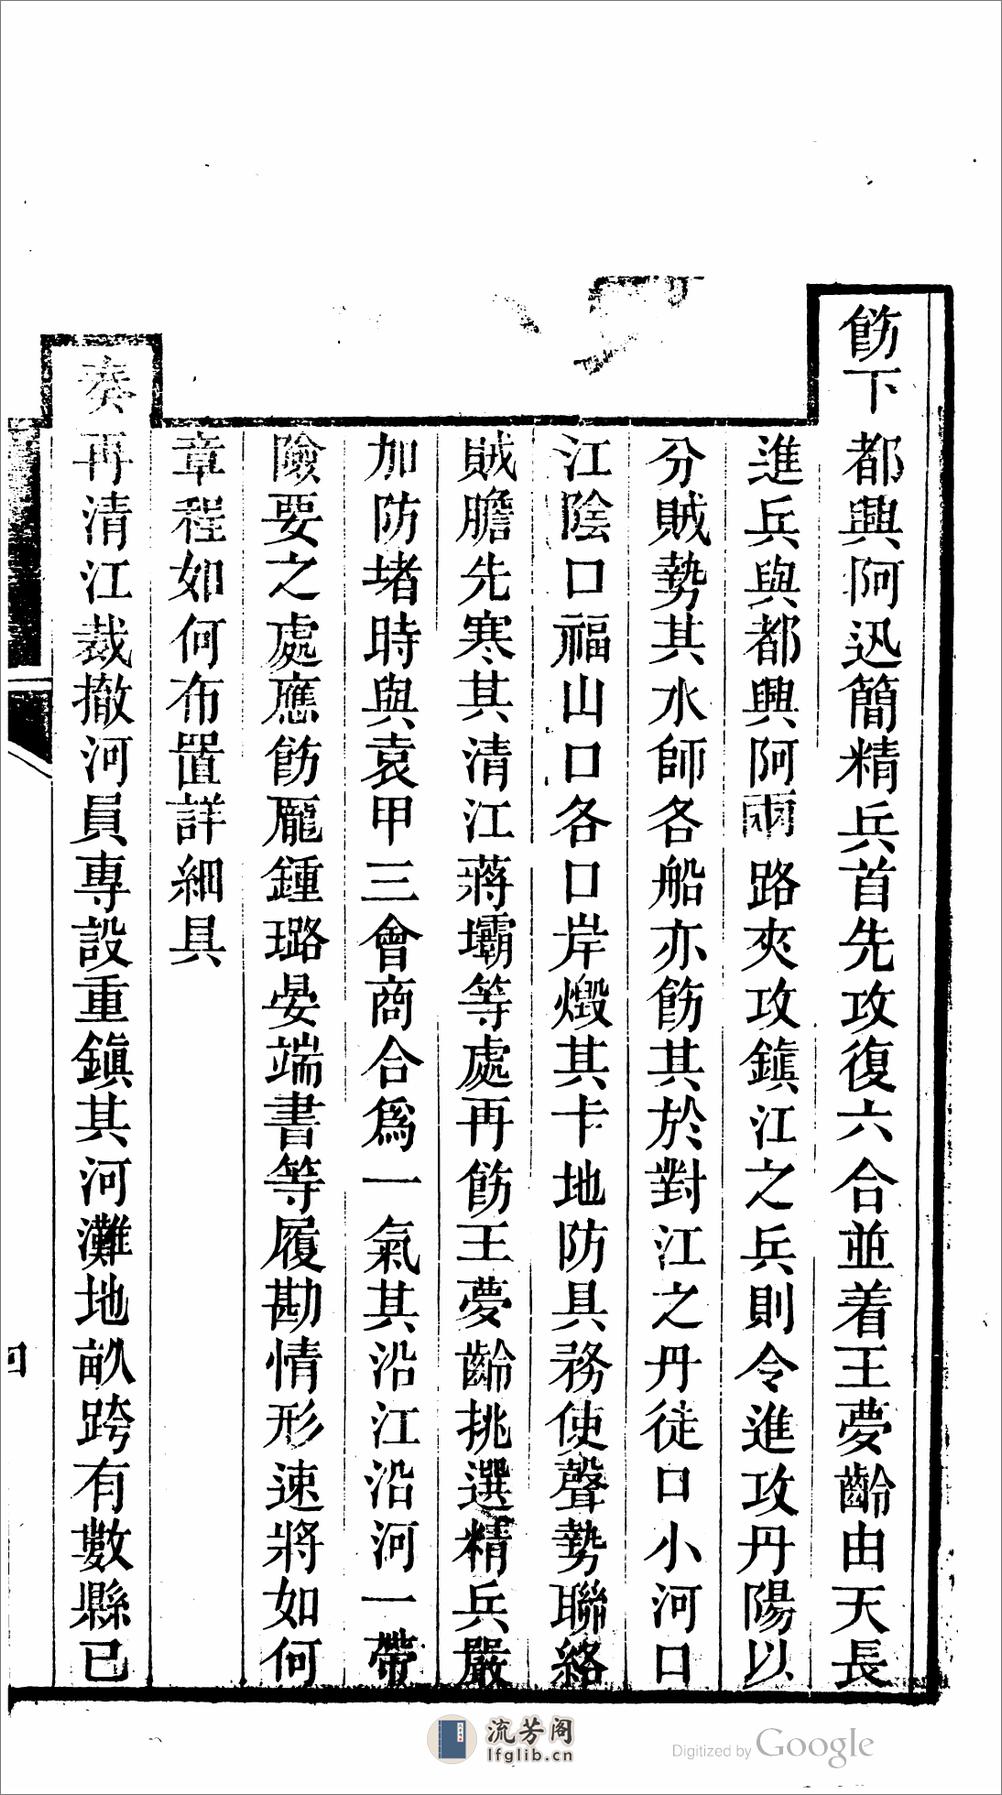 飭下都興阿迅簡精兵首先攻復六合並着王夢齡由天長
進兵與都興阿兩路夾攻鎭江之兵則令進攻丹陽以
分賊勢其水師各船亦飭其於對江之丹徒口小河口
江陰口福山口各口岸燬其卡地防具務使聲勢聯絡
賊膽先寒其清江蔣壩等處再飭王夢齡挑選精兵嚴
加防堵時與袁甲三會商合爲一氣其沿江沿河一帶
險要之處應飭龎鍾璐晏端書等履勘情形速將如何
章程如何布置詳細具
奏再清江裁撤河員專設重鎭其河灘地畝跨有數縣已
流芳阁
lfglib.cn
Digitized by Google